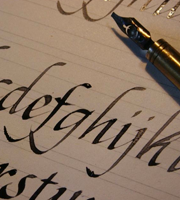 defghijk
rstuv